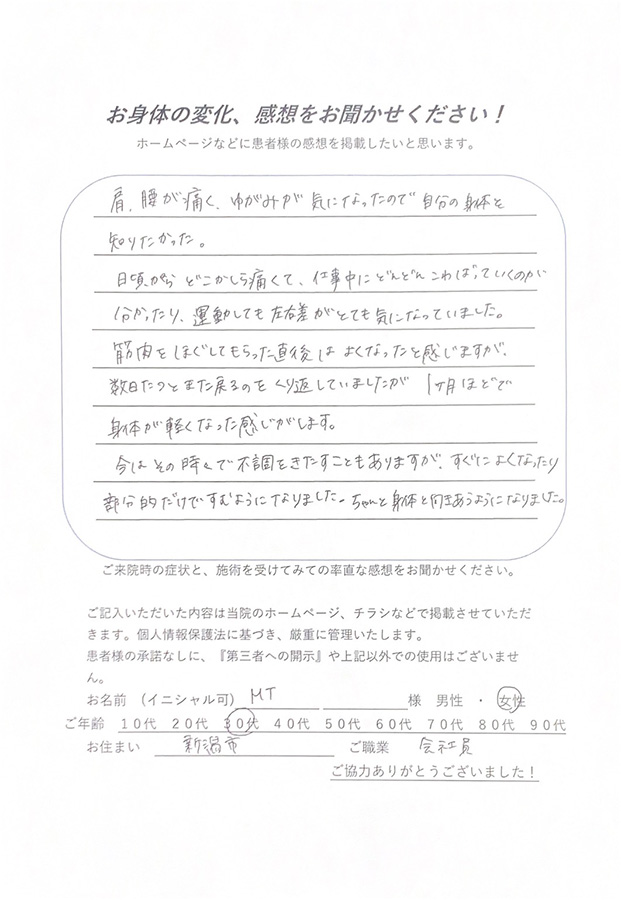 お身体の変化、感想をお聞かせください！
ホームページなどに患者様の感想を掲載したいと思います。
肩、腰が痛く、ゆがみが気になったので自分の身体を
知りたかった。
日頃からどこかしら痛くて、仕事中にどんどんこわばっていくのが
分かったり、運動しても左右差がとても気になっていました。
筋肉をほぐしてもらった直後はよくなったと感じますが、
数日たつとまた戻るのをくり返していましたが 1ヶ月ほどで
身体が軽くなった感じがします。
今はその時々で不調をきたすこともありますが、すぐによくなったり
部分的だけですむようになりました。ちゃんと身体と向きあうようになりました。
ご来院時の症状と、施術を受けてみての率直な感想をお聞かせください。
ご記入いただいた内容は当院のホームページ、チラシなどで掲載させていただ
きます。個人情報保護法に基づき、厳重に管理いたします。
患者様の承諾なしに、『第三者への開示』や上記以外での使用はございませ
ん。
お名前 （イニシャル可） MT 様 男性 ・ 女性
ご年齢 10代 20代 30代 40代 50代 60代 70代 80代 90代
お住まい 新潟市 ご職業 会社員
ご協力ありがとうございました！